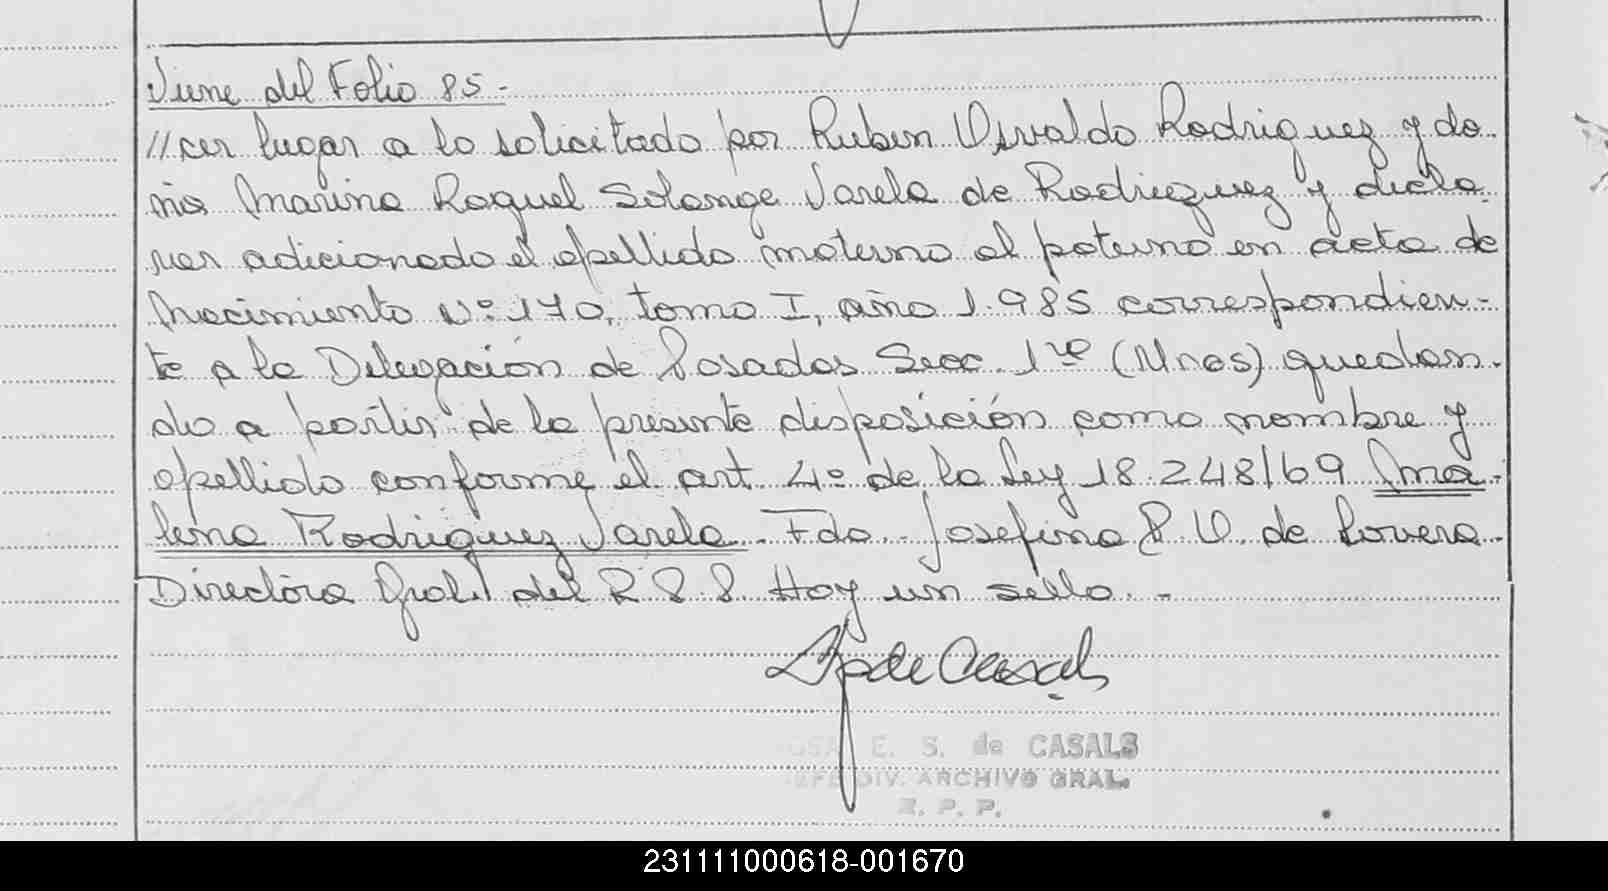 Viene del Folio 85.-
//cer lugar a lo solicitado por Ruben Osvaldo Rodriguez y do-
ña Marina Raquel Solange Varela de Rodriguez y decla-
rar adicionado el apellido materno al paterno en acta de
Nacimiento Nº 170, tomo I, año 1.985 correspondien-
te a la Delegación de Posadas Secc. 1ra (Mnes) quedan-
do a partir de la presente disposición como nombre y
apellido conforme el art. 4º de la Ley 18.248/69 Ma-
lena Rodriguez Varela.- Fdo. Josefina V. de Lovera-
Directora Gral. del R.P.P. Hay un sello.-
de Casals
E. S. de CASALS
DIV. ARCHIVO GRAL.
R. P. P.
231111000618-001670